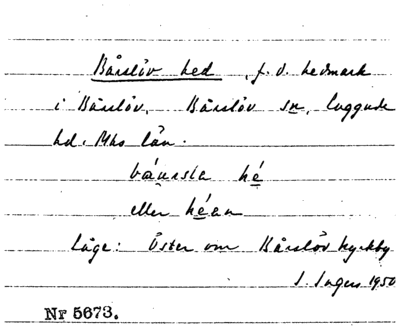 Bårslöv hed, f.d. hedmark
i Bårslöv, Bårslöv sn, Luggude
hd. Mhs län.
båursla hé
eller héan
Läge: Öster om Bårslöv kyrkby
1950
Nr 5673.